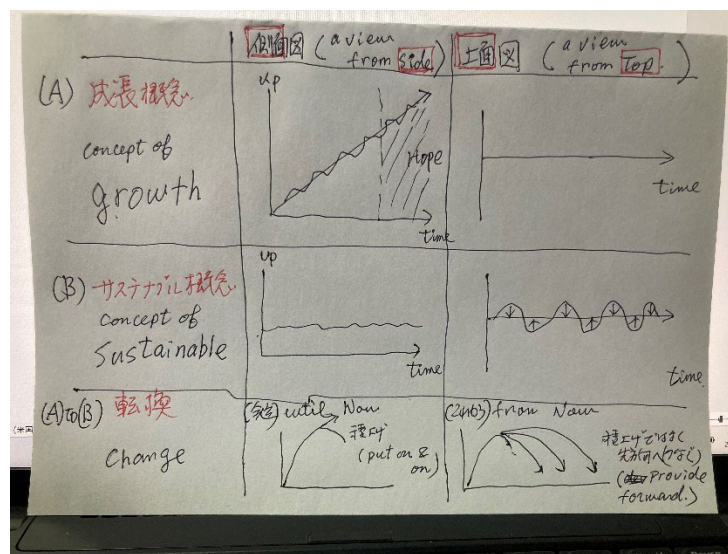 側面図 (a view from side)
上面図 (a view from Top.)
(A) 成長概念
concept of
growth
up
Hope
time
time
(B) サステナブル概念
concept of
Sustainable
up
time
time
(A)to(B) 転換
Change
until Now
積上げ
(put on & on)
from Now
積上げではなく
(Provide
forward.)